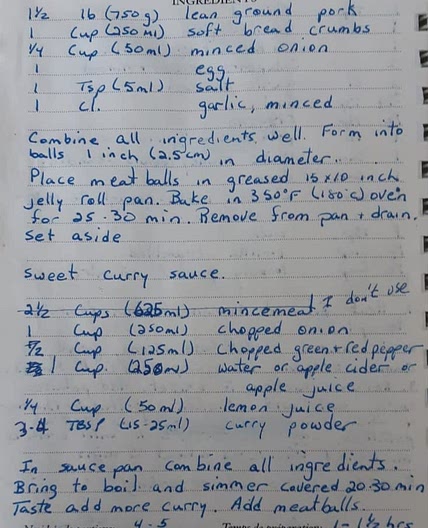 INGREDIENTS
1½ lb (750g) lean ground pork
1 Cup (250 ml) soft bread crumbs
¼ Cup (50ml) minced onion
1 egg
1 Tsp (5ml) salt
1 cl. garlic, minced
Combine all ingredients well. Form into
balls 1 inch (2.5cm) in diameter.
Place meatballs in greased 15 x 10 inch
jelly roll pan. Bake in 350°F (180°C) oven
for 25-30 min. Remove from pan + drain.
Set aside
Sweet curry sauce.
2½ Cups (625ml) mincemeat I don't use
1 Cup (250ml) chopped onion
½ Cup (125ml) Chopped green + red pepper
1 Cup (250ml) water or apple cider or
apple juice
¼ Cup (50ml) lemon juice
3-4 TBSP (15-25ml) curry powder
In sauce pan combine all ingredients.
Bring to boil and simmer covered 20-30 min
Taste add more curry. Add meatballs.
4-5 1-1½ hrs